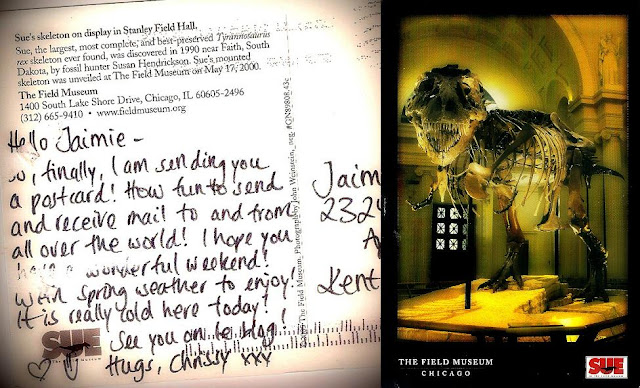 Sue's skeleton on display in Stanley Field Hall.
Sue, the largest, most complete, and best-preserved Tyrannosaurus
rex skeleton ever found, was discovered in 1990 near Faith, South
Dakota, by fossil hunter Susan Hendrickson. Sue's mounted
skeleton was unveiled at The Field Museum on May 17, 2000.
The Field Museum
1400 South Lake Shore Drive, Chicago, IL 60605-2496
(312) 665-9410 • www.fieldmuseum.org
Hello Jaimie -
so, finally, I am sending you
a postcard! How fun to send
and receive mail to and from
all over the world! I hope you
have a wonderful weekend!
warm spring weather to enjoy!
It is really cold here today!
See you on the blog!
Hugs, Chrissy xxx
SUE
The Field Museum, Photograph by John Weinstein, neg. #GN89808.43c
Jaim
232
A
Kent
THE FIELD MUSEUM
CHICAGO
SUE